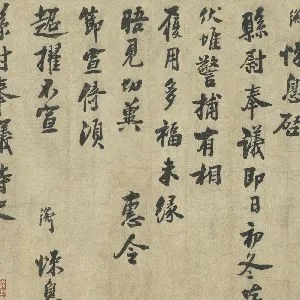 悚息啓
縣尉奉議即日初冬
伏惟警捕有相
履用多福未緣
晤見切冀 惠令
節宣倚須
超擢不宣
悚息
縣尉奉議